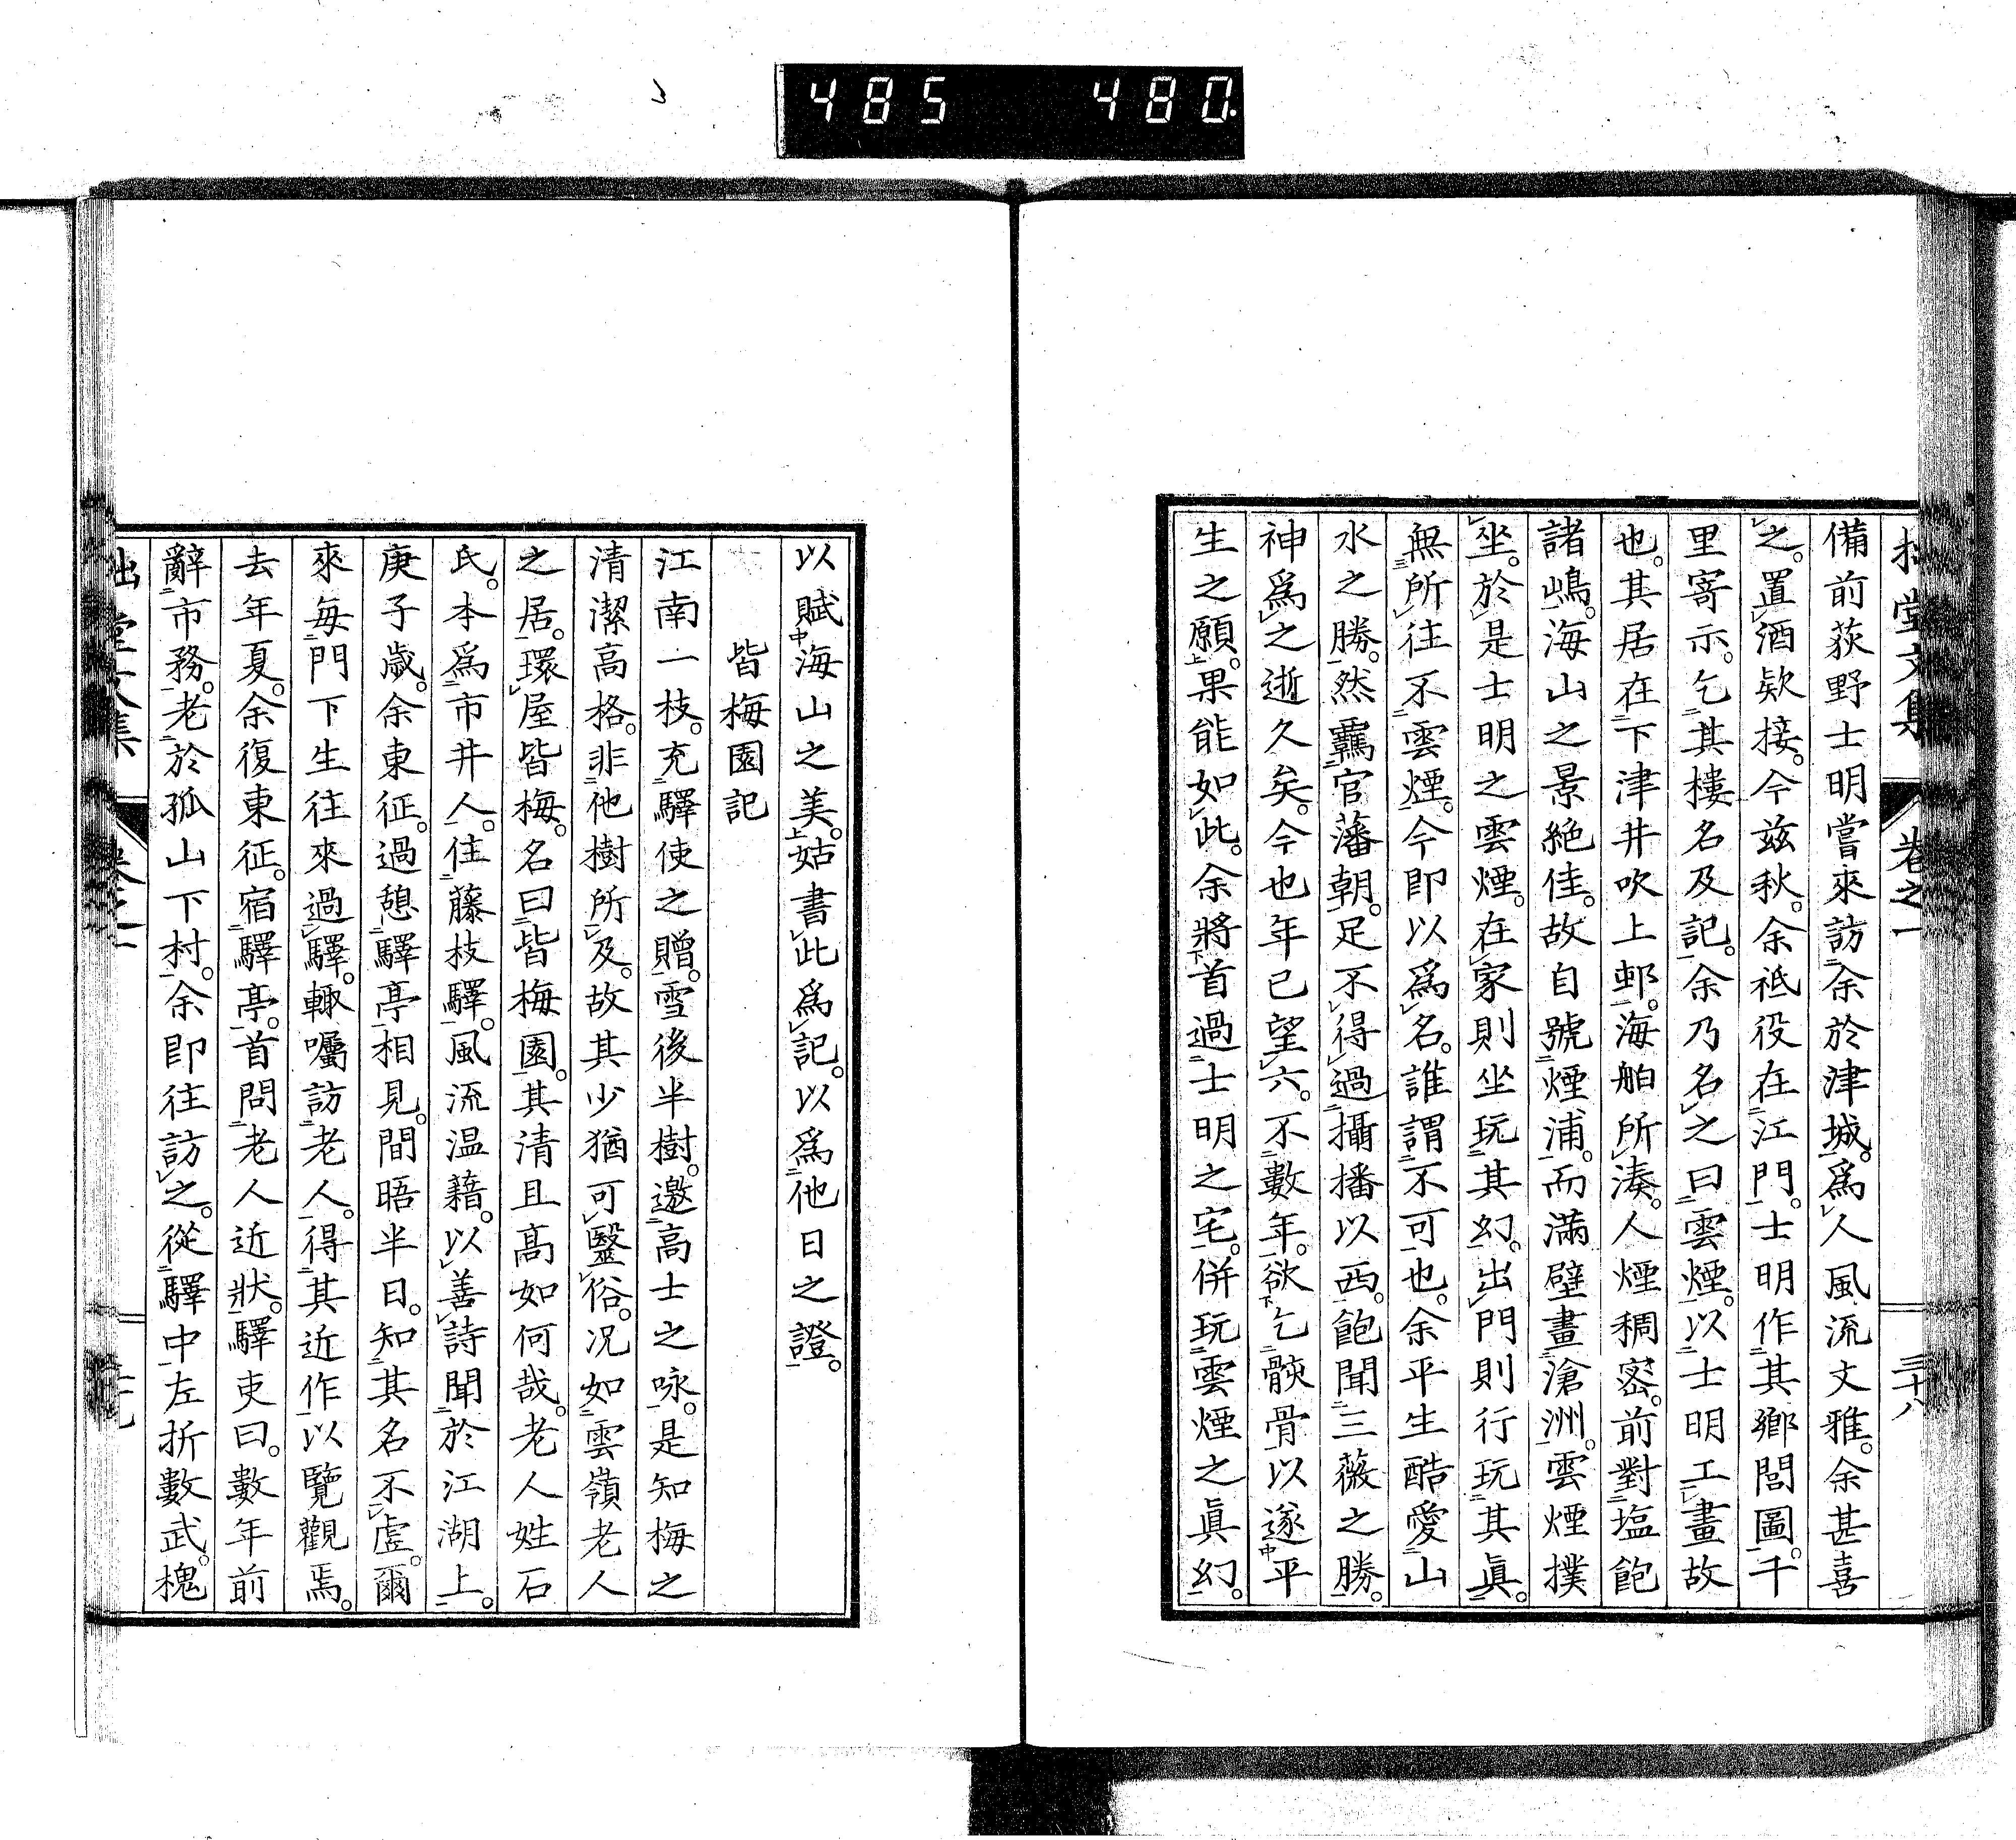 485 480
備前荻野士明嘗來訪余於津城。爲人風流文雅。余甚喜
之。置酒欵接。今茲秋。余祗役在江門。士明作其鄉閭圖。千
里寄示。乞其樓名及記。余乃名之曰雲煙。以士明工畫故
也。其居在下津井吹上邨。海舶所湊。人煙稠密。前對塩飽
諸嶋。海山之景絶佳。故自號煙浦。而滿壁畫滄洲。雲煙撲
坐。於是士明之雲煙。在家則坐玩其幻。出門則行玩其眞。
無所往不雲煙。今即以爲名。誰謂不可也。余平生酷愛山
水之勝。然羈官藩朝。足不得過攝播以西。飽聞三薇之勝。
神爲之逝久矣。今也年已望六。不數年。欲乞骸骨以遂平
生之願。果能如此。余將首過士明之宅。併玩雲煙之眞幻。
堂文集 卷之一 三十八
以賦海山之美。姑書此爲記。以爲他日之證。
皆梅園記
江南一枝。充驛使之贈。雪後半樹。邀高士之咏。是知梅之
清潔高格。非他樹所及。故其少猶可毉俗。况如雲嶺老人
之居。環屋皆梅。名曰皆梅園。其清且高如何哉。老人姓石
氏。本爲市井人。住藤枝驛。風流温藉。以善詩聞於江湖上。
庚子歲。余東征。過憩驛亭相見。間晤半日。知其名不虛。爾
來每門下生往來過驛。輙囑訪老人。得其近作以覽觀焉。
去年夏。余復東征。宿驛亭。首問老人近狀。驛吏曰。數年前
辭市務。老於孤山下村。余即往訪之。從驛中左折數武。槐